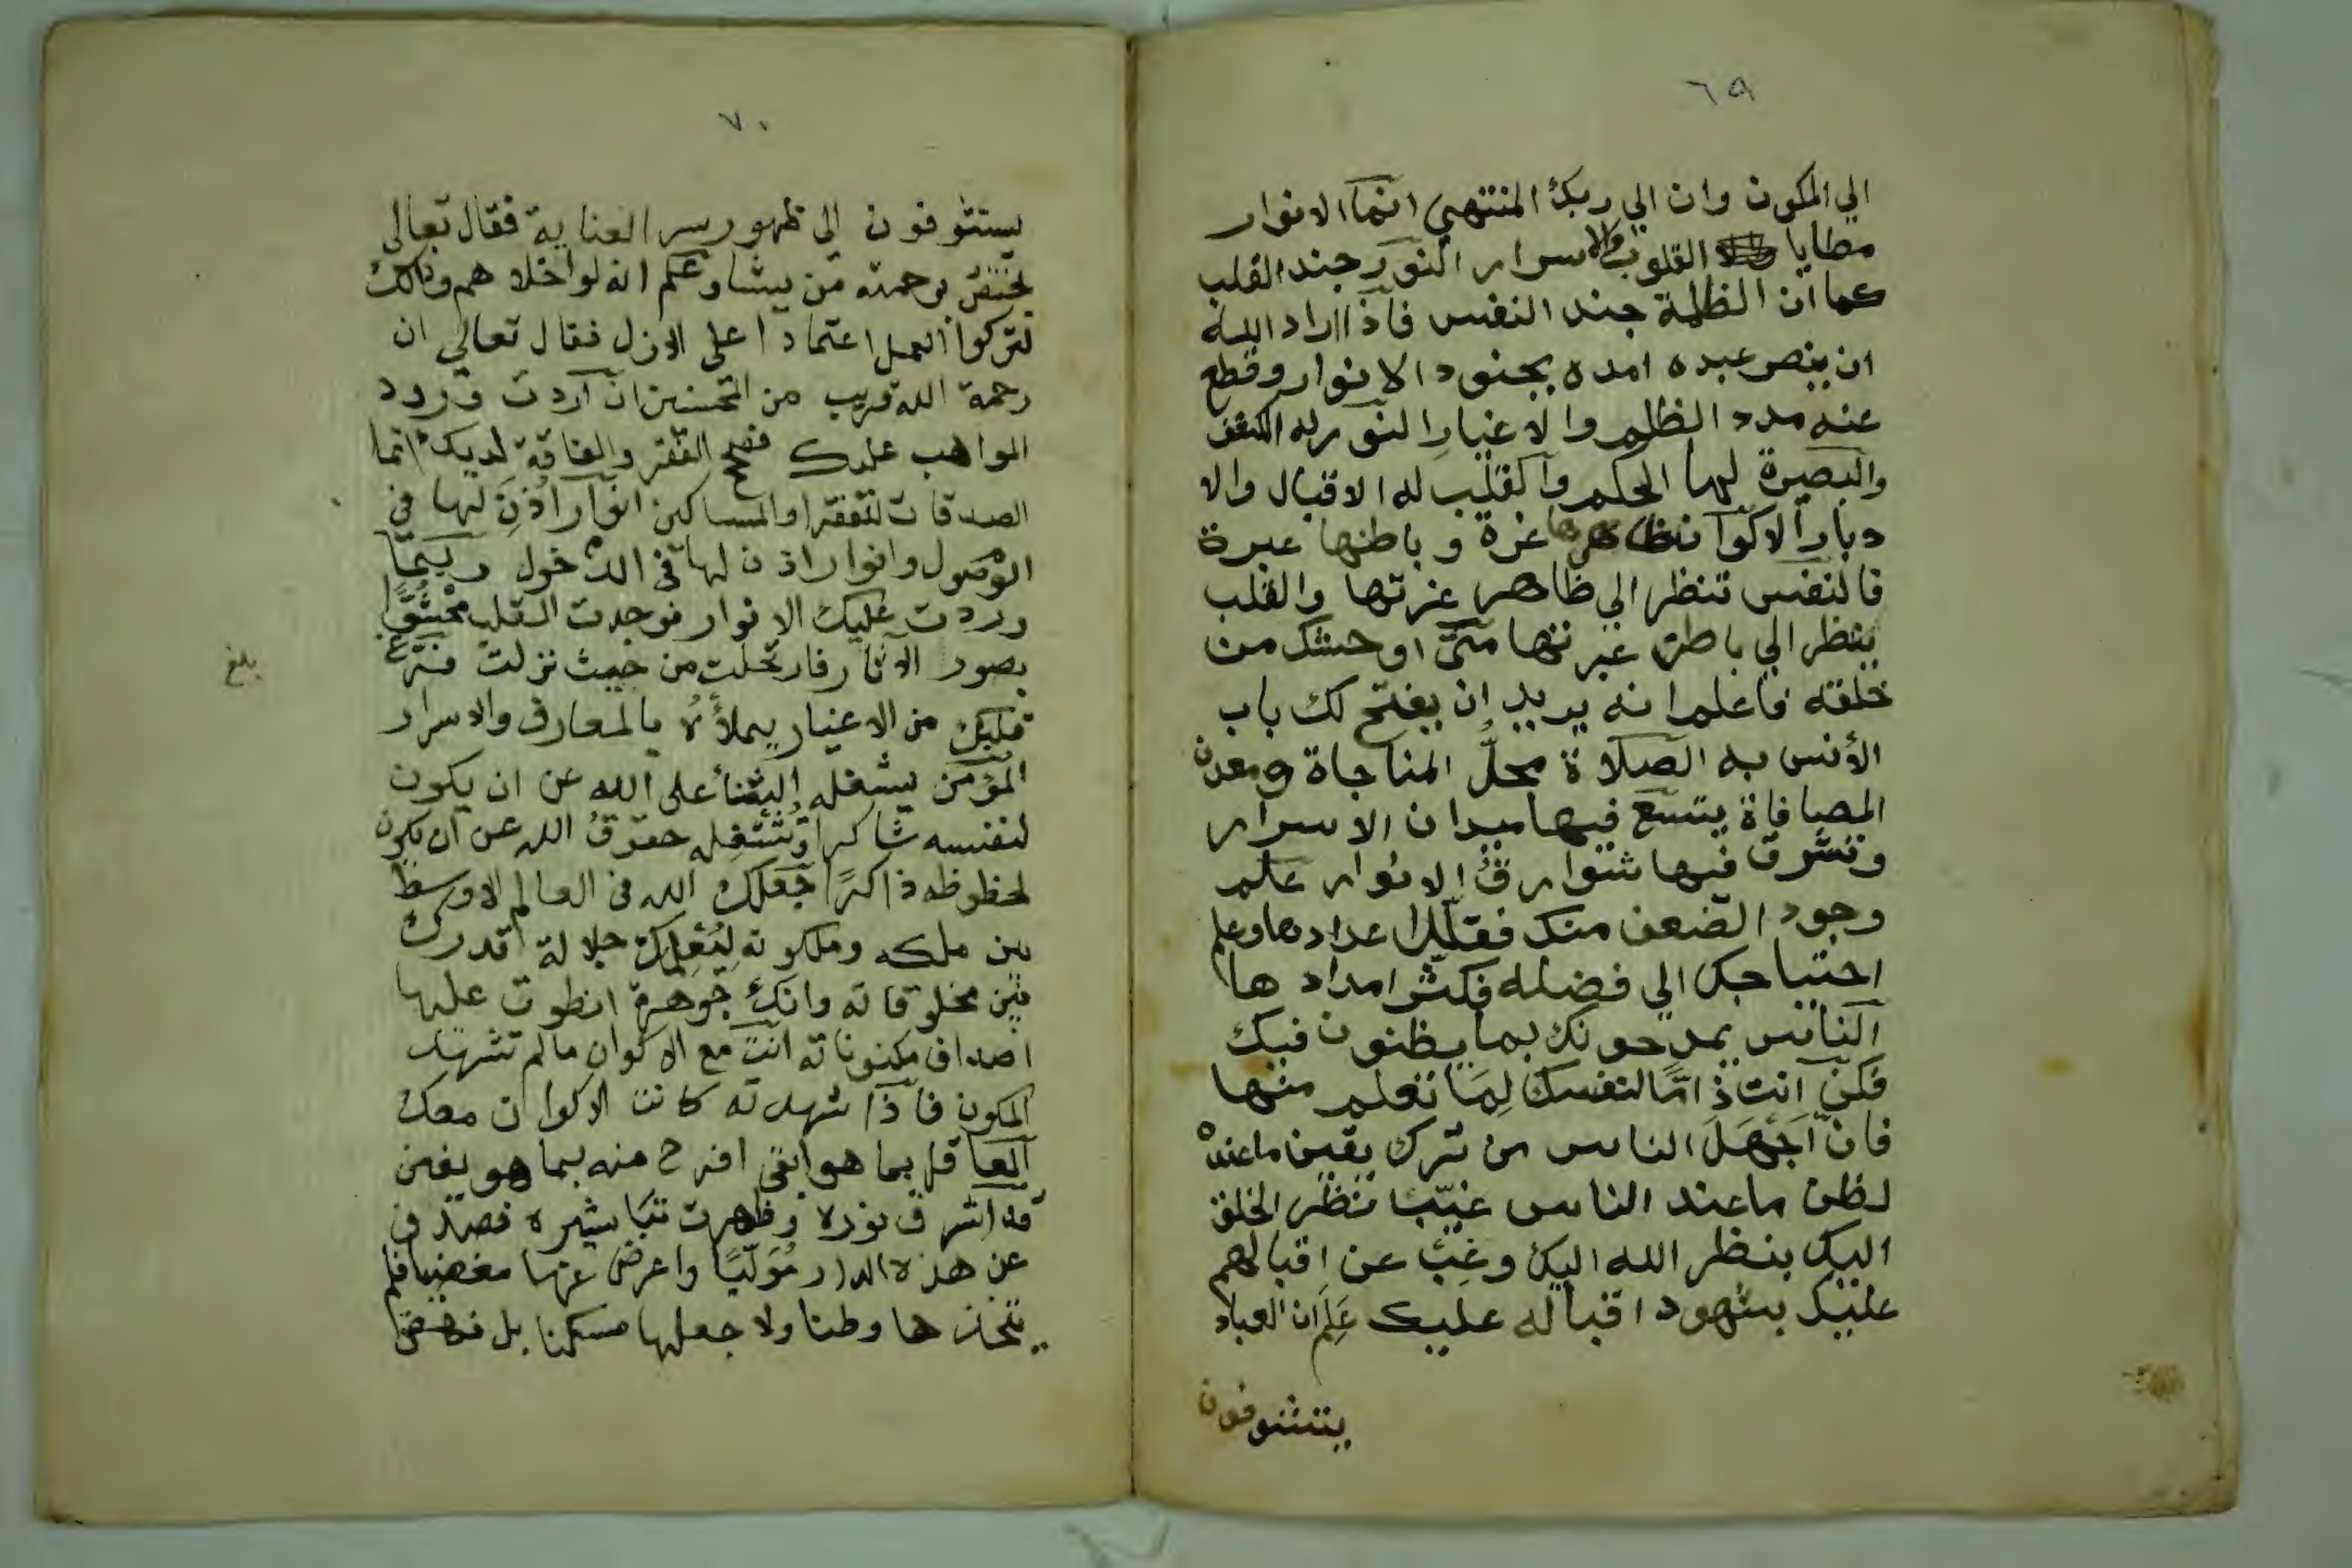 ٦٩
الي المكون وان الي ربك المنتهي انما الانوار
مطايا القلوب والاسرار النور جند القلب
كما ان الظلمة جند النفس فاذا اراد الله
ان ينصر عبده امده بجنود الانوار وقطع
عنه مدد الظلم والاغيار النور له الكشف
والبصيرة لها الحكم والقلب له الاقبال والا
دبار الاكوان ظاهرها غرة وباطنها عبرة
فالنفس تنظر الي ظاهر غرتها والقلب
ينظر الي باطن عبرتها متى اوحشك من
خلقه فاعلم انه يريد ان يفتح لك باب
الأنس به الصلاة محلُّ المناجاة ومعدن
المصافاة يتسع فيها ميدان الاسرار
وتشرق فيها شوارقُ الانوار علم
وجود الضعف منك فقلل اعدادها وعلم
احتياجك الي فضله فكثر امدادها
الناس يمدحونك بما يظنون فيك
فكن انت ذامًّا لنفسك لِمَا تعلم منها
فان أَجْهَلَ الناس من ترك يقين ما عنده
لظن ما عند الناس غيّب نظر الخلق
اليك بنظر الله اليك وغِبْ عن اقبالهم
عليك بشهود اقباله عليك عَلِمَ ان العباد
يتشوفون
٧٠
يستشوفون الى ظهور سر العناية فقال تعالى
يختص برحمته من يشا وعلم انه لو اخلاهم وذالك
لتركوا العمل اعتمادا على الازل فقال تعالي ان
رحمة الله قريب من المحسنين ان اردت ورود
المواهب عليك فصحح الفقر والفاقة لديك انما
الصدقات للفقرا والمساكين انوار اُذِنَ لها في
الوصول وانوار اذن لها في الدخول ربمّا
وردت عليك الانوار فوجدت القلب محشُوًّا
بصور الاثار فارتحلت من حيث نزلت فرّغ
قلبك من الاغيار يملأهُ بالمعارف والاسرار
المؤمن يشغله الثنأ على الله عن ان يكون
لنفسه شاكرا وتُشْغِله حقوقُ الله عن ان يكون
لحظوظه ذاكرًا جعلك الله في العالم الاوسط
بين ملكه وملكوته لِيُعْلِمك جلالة قدرك
بين مخلوقاته وانك جوهرة انطوت عليها
اصداف مكنوناته انت مع الاكوان ما لم تشهد
المكون فاذا شهدته كانت الاكوان معك
العاقل بما هو ابقى افرح منه بما هو يفنى
قد اشرق نوره وظهرت تباشيره فصدف
عن هذه الدار مُوَلّيًا واعرض عنها مغضيا فلم
يتخذها وطنا ولا جعلها مسكنا بل نهض
بلغ